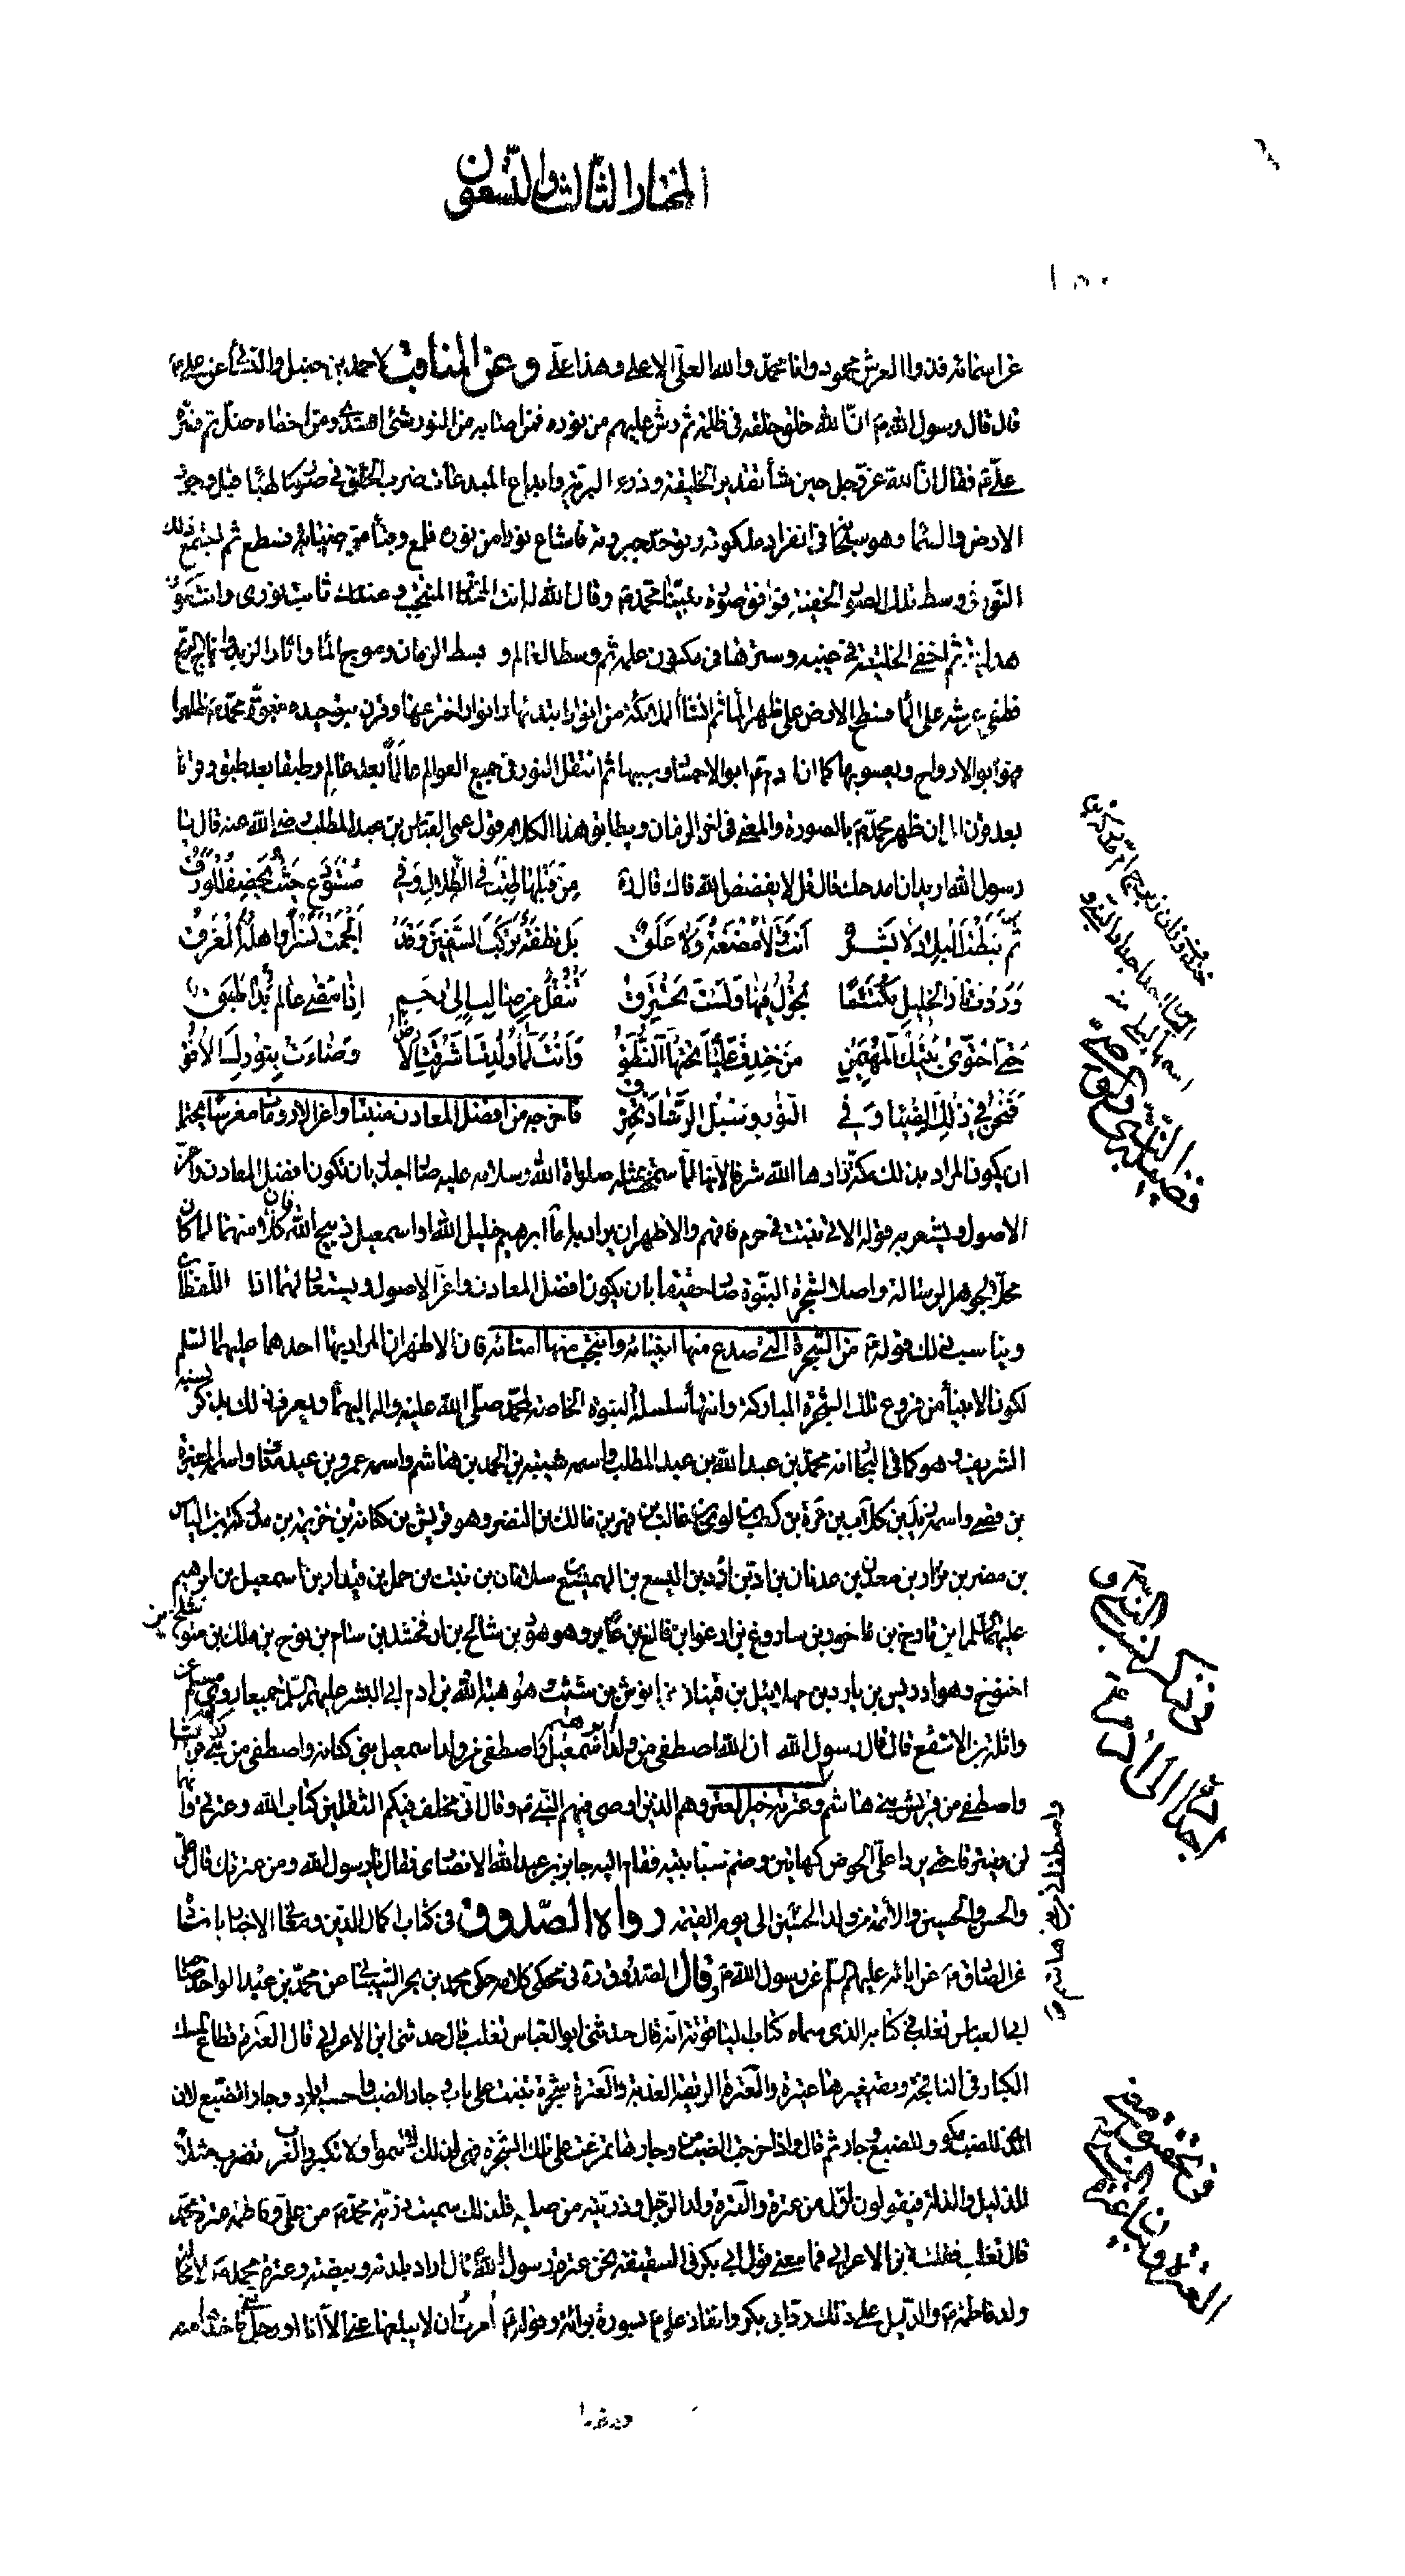 المختار الثالث والتسعون
١٥٠
من اسمائه فذوا العرش محمود وانا محمّد والله العلىّ الاعلى وهذا علىّ وعن المناقب لاحمد بن حنبل والنسائى عن علىّ ع
قال قال رسول الله ص انّ الله خلق خلقه فى ظلمة ثم رشّ عليهم من نوره فمن اصابه من النور شئ اهتدى ومن اخطاه ضلّ ثم فسّره
علىّ ع فقال انّ الله عزّ وجل حين شاء تقدير الخليقة وذرء البرية وابداع المبدعات ضرب الخلق فى صور كالهباء قبل وجود
الارض والسماء وهو سبحانه فى انفراد ملكوته وتوحّد جبروته فاشاع نورا من نوره فلمع وقبسا من ضيائه فسطع ثم اجتمع ذلك
النّور فى وسط تلك الصور الخفيّة فوافق صورة نبيّنا محمّد ص وقال الله له انت المختار المنتخب وعندك ثابت نورى وانت كنوز
هدايتى ثم اخفى الخليقة فى غيبه وسترها فى مكنون علمه ثم وسط العالم وبسط الزمان وموج الماء واثار الزبد واهاج الريح
فطفى عرشه على الماء فسطح الارض على ظهر الماء ثم انشأ الملائكة من انوار ابتدعها وانوار اخترعها وقرن بتوحيده نبوّة محمّد ص ظاهرا
فهو ابو الارواح ويعسوبها كما ان ادم ع ابو الاجساد وسببها ثم انتقل النور فى جميع العوالم عالما بعد عالم وطبقا بعد طبق وقرنا
بعد قرن الى ان ظهر محمّد ص بالصورة والمعنى فى اخر الزمان ويطابق هذا الكلام قول عمى العباس بن عبد المطلب رضى الله عنه قال يا
رسول الله اريد ان امدحك قال قل لا يفضض الله فاك قال ره مِن قَبْلِها طِبْتَ فى الظِّلالِ وَفى مُسْتَوْدَعٍ حَيْثُ يُخْصَفُ الْوَرَقُ
ثُمَّ هَبَطْتَ الْبِلادَ لا بَشَرٌ اَنْتَ وَلا مُضْغَةٌ وَلا عَلَقٌ بَلْ نُطْفَةٌ تَرْكَبُ السَّفِينَ وَقَدْ اَلْجَمَ نَسْراً وَاَهْلَهُ الْغَرَقُ
وَرَدْتَ نارَ الْخَلِيلِ مُكْتَتِمًا تَجُولُ فِيهَا وَلَسْتَ تَحْتَرِقُ تُنْقَلُ مِنْ صالِبٍ اِلى رَحِمٍ اِذا مَضى عالَمٌ بَدا طَبَقٌ
حَتّى احْتَوى بَيْتُكَ الْمُهَيْمِنُ مِنْ خِنْدِفَ عَلْياءَ تَحْتَهَا النُّطُقُ وَاَنْتَ لَمّا وُلِدْتَ اَشْرَقَتِ الْاَرْضُ وَضاءَتْ بِنُورِكَ الْاُفُقُ
فَنَحْنُ فى ذلِكَ الضِّياءِ وَفى النُّورِ وَسُبْلِ الرَّشادِ نَخْتَرِقُ فاخرجه من افضل المعادن منبتا واعزّ الارومات مغرسا يحتمل
ان يكون المراد بذلك مكّة زادها الله شرفا لانّها لمّا سمحت بمثله صلواة الله وسلامه عليه صار اجدر بان تكون افضل المعادن واعزّ
الاصول ويشعر به قوله الاتى نبتت فى حرم فافهم والاظهر ان يراد به امّا ابرهيم خليل الله او اسمعيل ذبيح الله فان كلا منهما لما كان
محلّا لجوهر الرسالة واصلا لشجرة النبّوة صار حقيقا بان يكون افضل المعادن واعزّ الاصول ويستعار لهما هذا اللفظان
ويناسب ذلك قوله ع من الشجرة التى صدع منها انبيائه وانتجب منها امنائه فان الاظهر ان المراد بها احدهما عليهما السّلم
لكون الانبياء من فروع تلك الشجرة المباركة وانتهاء سلسلة النبوة الخاصة لمحمّد صلّى الله عليه واله اليهما ويعرف ذلك بذكر نسبه
الشريف وهو كما فى البحار انه محمّد بن عبد الله بن عبد المطلب واسمه شيبة الحمد بن هاشم واسمه عمرو بن عبد مناف واسمه المغيرة
بن قصى واسمه زيد بن كلاب بن مرّة بن كعب بن لوى بن غالب بن فهر بن مالك بن النضر وهو قريش بن كنانة بن خزيمة بن مدركة بن الياس
بن مضر بن نزار بن معد بن عدنان بن ادّ بن ادد بن اليسع بن الهميسع بن سلامان بن نبت بن حمل بن قيدار بن اسمعيل بن ابرهيم
عليهما السّلم ابن تارخ بن ناخور بن ساروغ بن ارغو ابن فالغ بن عابر وهو هود بن شالخ بن ارفخشد بن سام بن نوح بن ملك بن متوشلخ بن
اخنوخ وهو ادريس بن يارد بن مهلائيل بن قينان بن انوش بن شيث وهو هبة الله بن ادم ابى البشر عليهم السّلم جميعا روى مسلم عن
واثلة بن الاسقع قال قال رسول الله ان الله اصطفى من ولد ابرهيم اسمعيل واصطفى من ولد اسمعيل بنى كنانة واصطفى من بنى كنانة قريشا
واصطفى من قريش بنى هاشم وعترته خير العتر وهم الذين اوصى فيهم النبى ص وقال انّى مخلف فيكم الثقلين كتاب الله وعترتى وانّهما
لن يفترقا حتّى يردا علىّ الحوض كهاتين وضم سبابتيه فقام اليه جابر بن عبد الله الانصارى فقال يا رسول الله ومن عترتك قال علىّ
والحسن والحسين والائمة من ولد الحسين الى يوم القيمة رواه الصّدوق فى كتاب اكمال الدين ومعانى الاخبار باسناده
عن الصّادق ع عن ابائه عليهم السّلم عن رسول الله ص وقال الصدوق ره فى محكى كلامه حكى محمد بن بحر الشيبانى عن محمّد بن عبد الواحد صاحب
ابى العباس ثعلب فى كتابه الذى سماه كتاب الياقوتة انه قال حدثنى ابو العباس ثعلب قال حدثنى ابن الاعرابى قال العترة قطاع المسك
الكبار فى النافجة وتصغيرها عتيرة والعترة الريقة العذبة والعترة شجرة تنبت على باب وجار الضب واحسبه اراد وجار الضبع لان
الذى للضب مكو وللضبع وجار ثم قال واذا خرجت الضب من وجارها تمرّغت على تلك الشجرة فهى لذلك لا تنمو ولا تكبر والعرب تضرب مثلا
للذليل والذلة فيقولون اذل من عترة والعترة ولد الرجل وذريته من صلبه فلذلك سميت ذريّة محمّد ص من علىّ وفاطمة عترة محمّد
قال ثعلب فقلت لابن الاعرابى فما معنى قول ابى بكر فى السقيفة نحن عترة رسول الله قال اراد بلدته وبيضته وعترة محمد ص لا محالة
ولد فاطمة ع والدليل على ذلك ردّ ابى بكر وانفاذ علىّ ع بسورة برائة وقوله ص امرت ان لا يبلغها عنى الّا انا او رجل منى فاخذها منه
واصطفانى من بنى هاشم
فى ذكر نسب النبى ص
اجداده الى ادم ع
فى تحقيق معنى
العترة وبيان عترة النبى